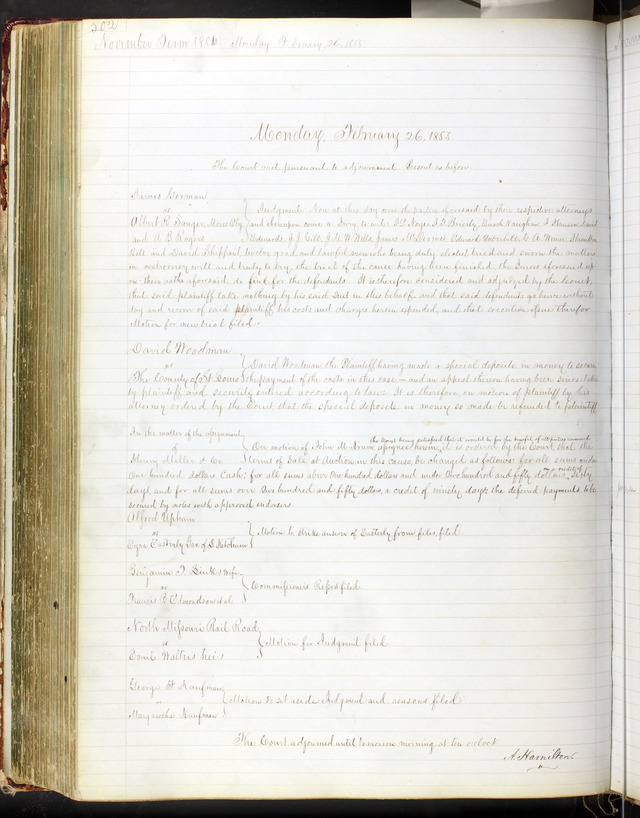 202
November Term 1854 Monday February 26, 1855
Monday, February 26, 1855
The Court met pursuant to adjournment Present as before
James Gorman
vs
Albert R.
and A B Rogers
Judgment Now at this day come the parties aforesaid by their respective attorneys
and thereupon come a Jury to wit:
and David Sheppard twelve good and lawful men who being duly elected tried and sworn the matters
in controversy well and truly to try, the trial of the cause having been finished, the Jurors aforesaid up
on their oaths aforesaid do find for the defendants. It is therefore considered and adjudged by the Court,
that said plaintiff take nothing by his said suit in this behalf, and that said defendants go hence without
day and recover of said plaintiff his costs and charges herein expended, and that execution issue therefor
Motion for new trial filed.
David Woodman
vs
The County of St Louis
David Woodman the Plaintiff having made a special deposite in money to secure
the payment of the costs in this case - and an appeal thereon having been since taken
by plaintiff and security entered according to law. It is therefore on motion of plaintiff by his
attorney ordered by the Court that the special deposite in money so made be refunded to plaintiff
In the matter of the assignment
of
Henry Miller & Co
the Court being satisfied that it would be for the benefit of all parties concerned
On motion of John M Krum assignee herein, it is ordered by the Court, that the
terms of Sale at Auction in this cause, be changed as follows: for all sums under
One hundred dollars Cash; for all sums above One hundred dollars and under Two hundred and fifty dollars, on a credit of sixty
days and for all sums over Two hundred and fifty dollars, a credit of ninety days, the deferred payments to be
secured by notes with approved endorsers.
Alfred Upham
vs
Ezra Easterly Gar. of D Ketchum
Motion to strike answer of Easterly from files, filed
Benjamin F. & wife
vs
Francis P. Edmondson et al
Commissioners Report filed
North Missouri Rail Road
vs
Walters heirs
Motion for Judgment filed
George H Kaufman
vs
Margaretha Kaufman
Motion to set aside Judgment and reasons filed
The Court adjourned until tomorrow morning at ten o'clock
A. Hamilton